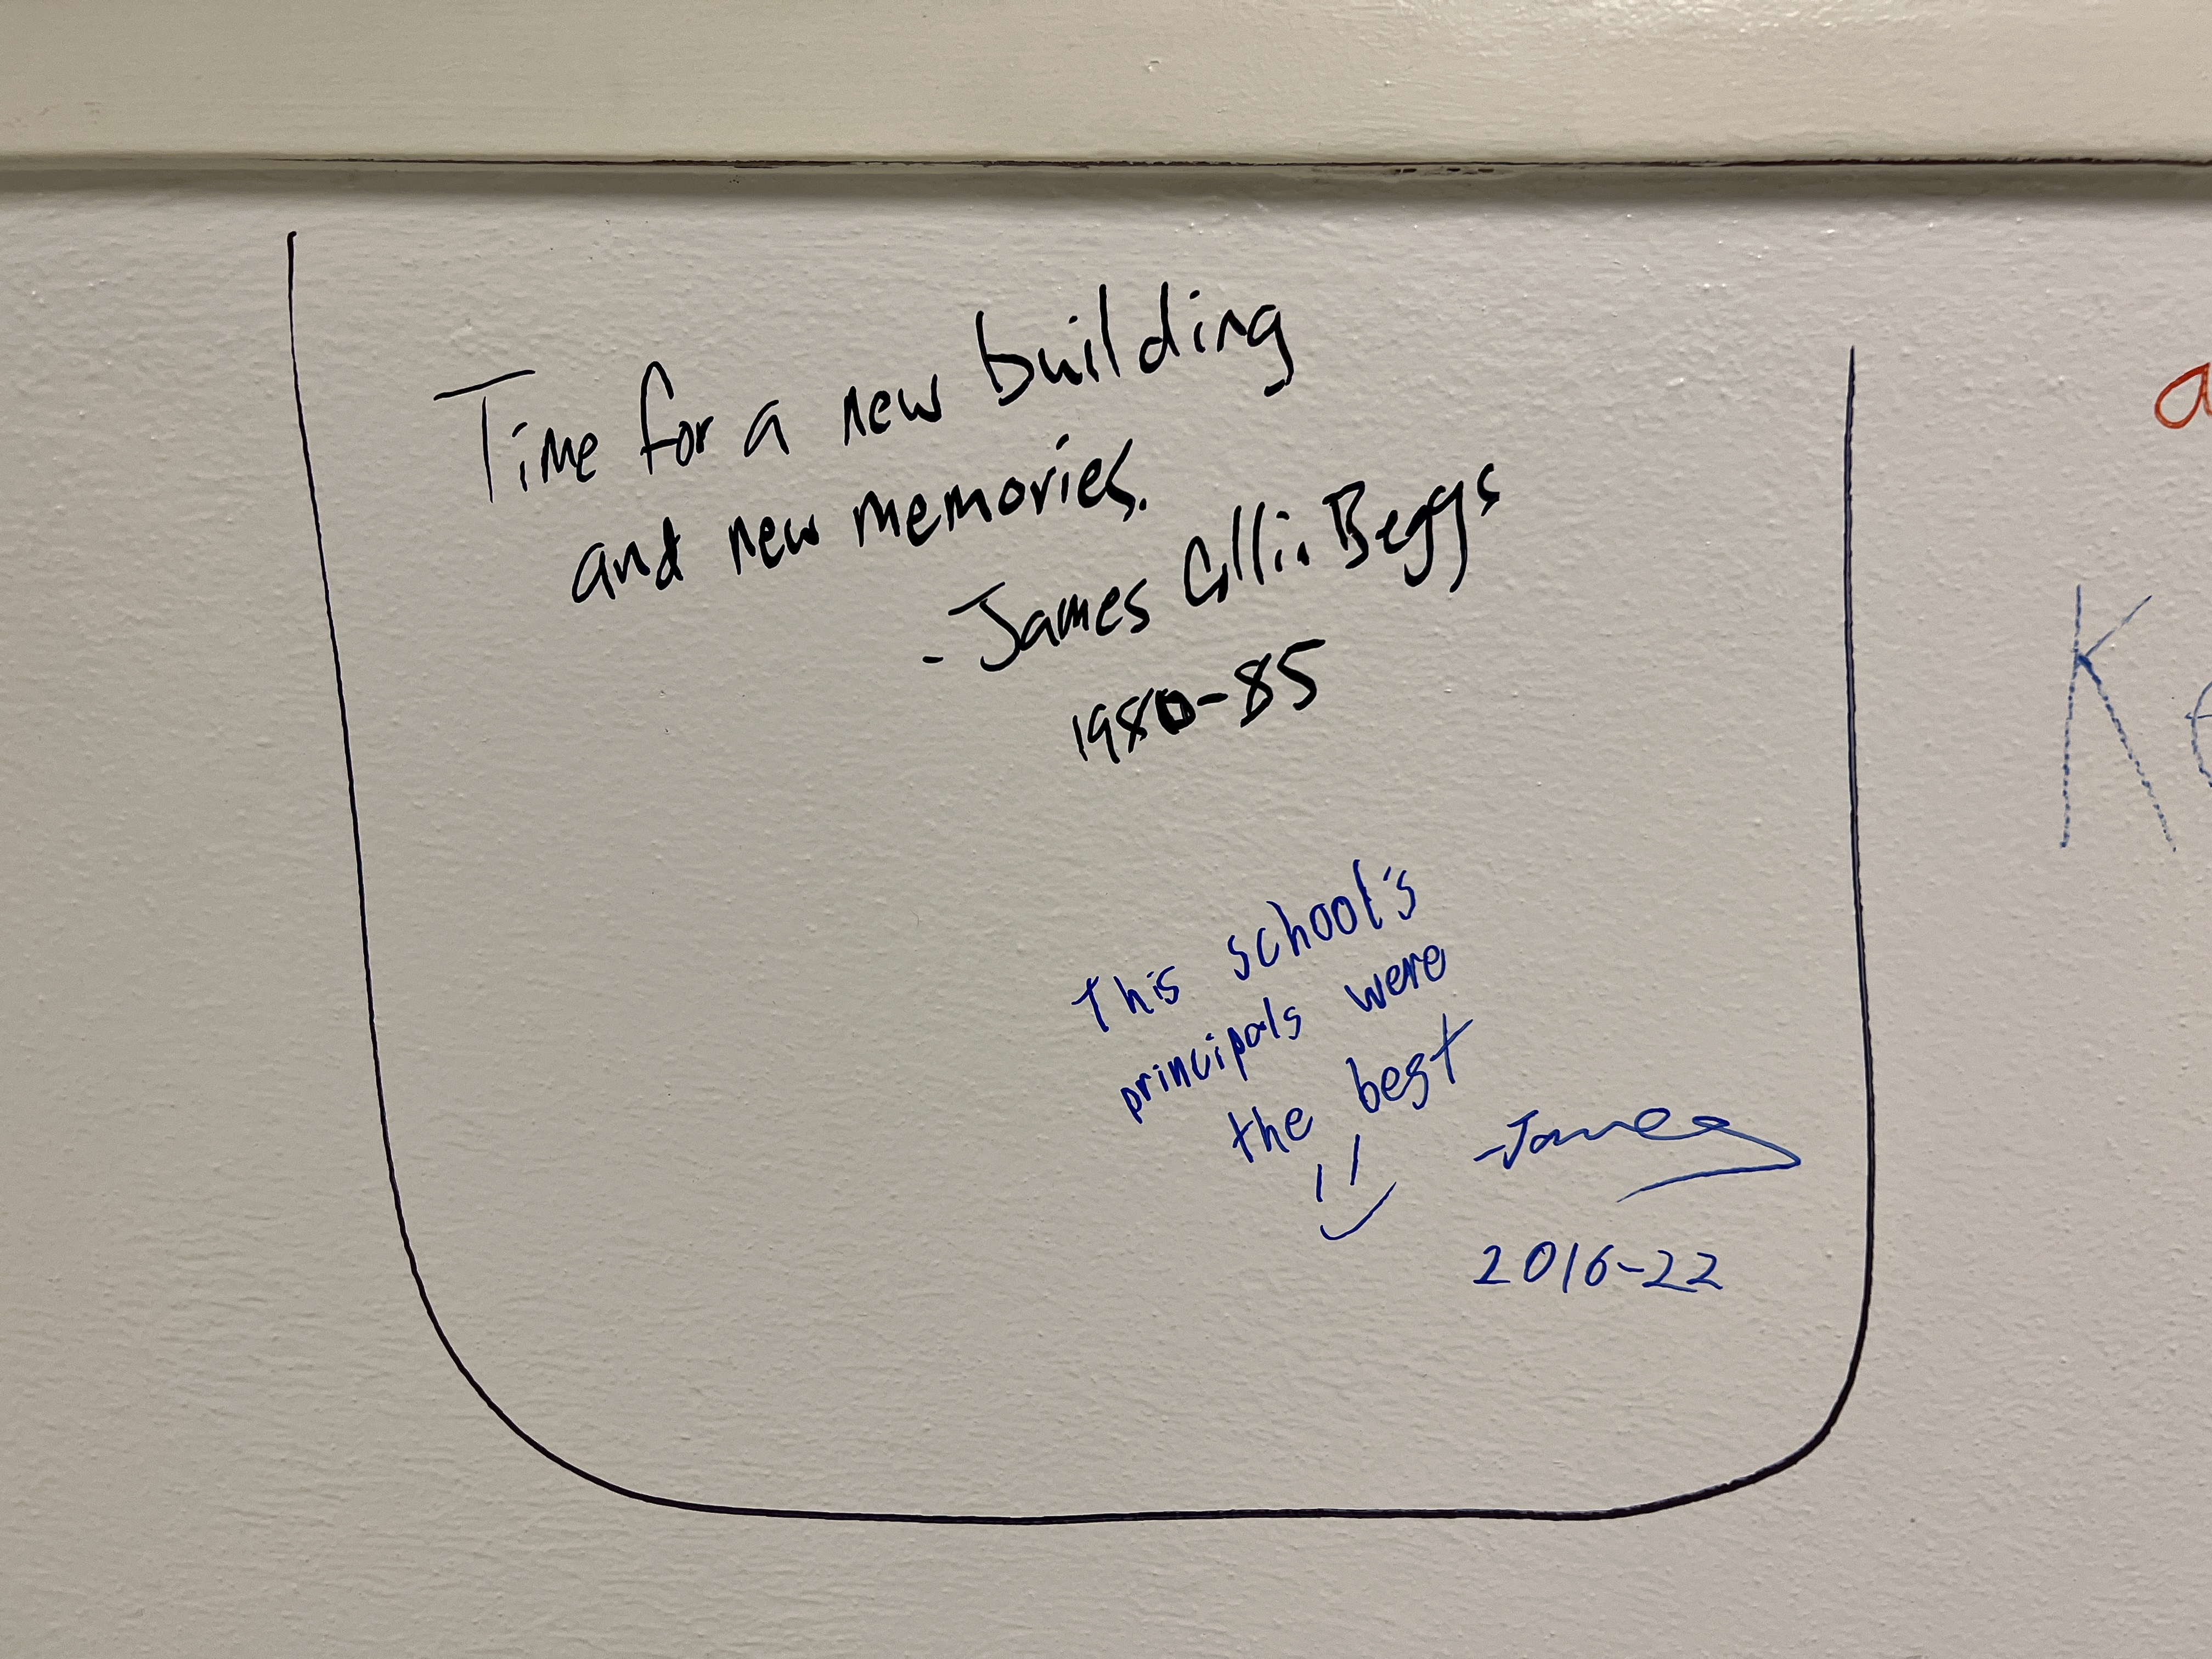 Time for a new building
and new memories.
- James Collin Beggs
1980-85
This school's
principals were
the best
-James
2016-22
a
Ke